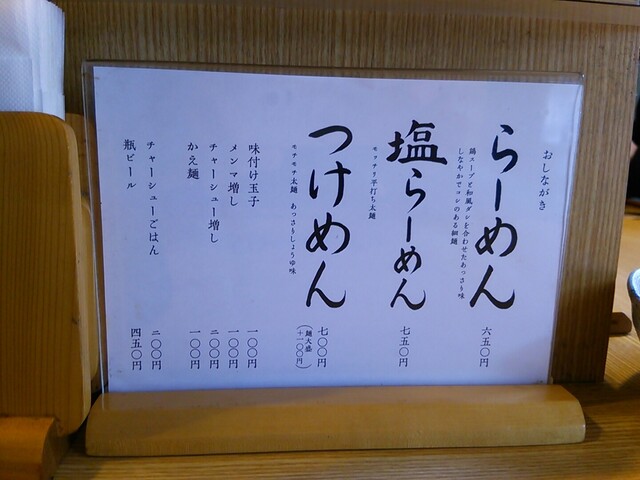 おしながき
らーめん
鶏スープと和風ダシを合わせたあっさり味
しなやかでコシのある細麺
六五〇円
塩らーめん
モッチリ平打ち太麺
七五〇円
つけめん
モチモチ太麺 あっさりしょうゆ味
七〇〇円
(麺大盛
+一〇〇円)
味付け玉子 一〇〇円
メンマ増し 一〇〇円
チャーシュー増し 二〇〇円
かえ麺 一〇〇円
チャーシューごはん 二〇〇円
瓶ビール 四五〇円